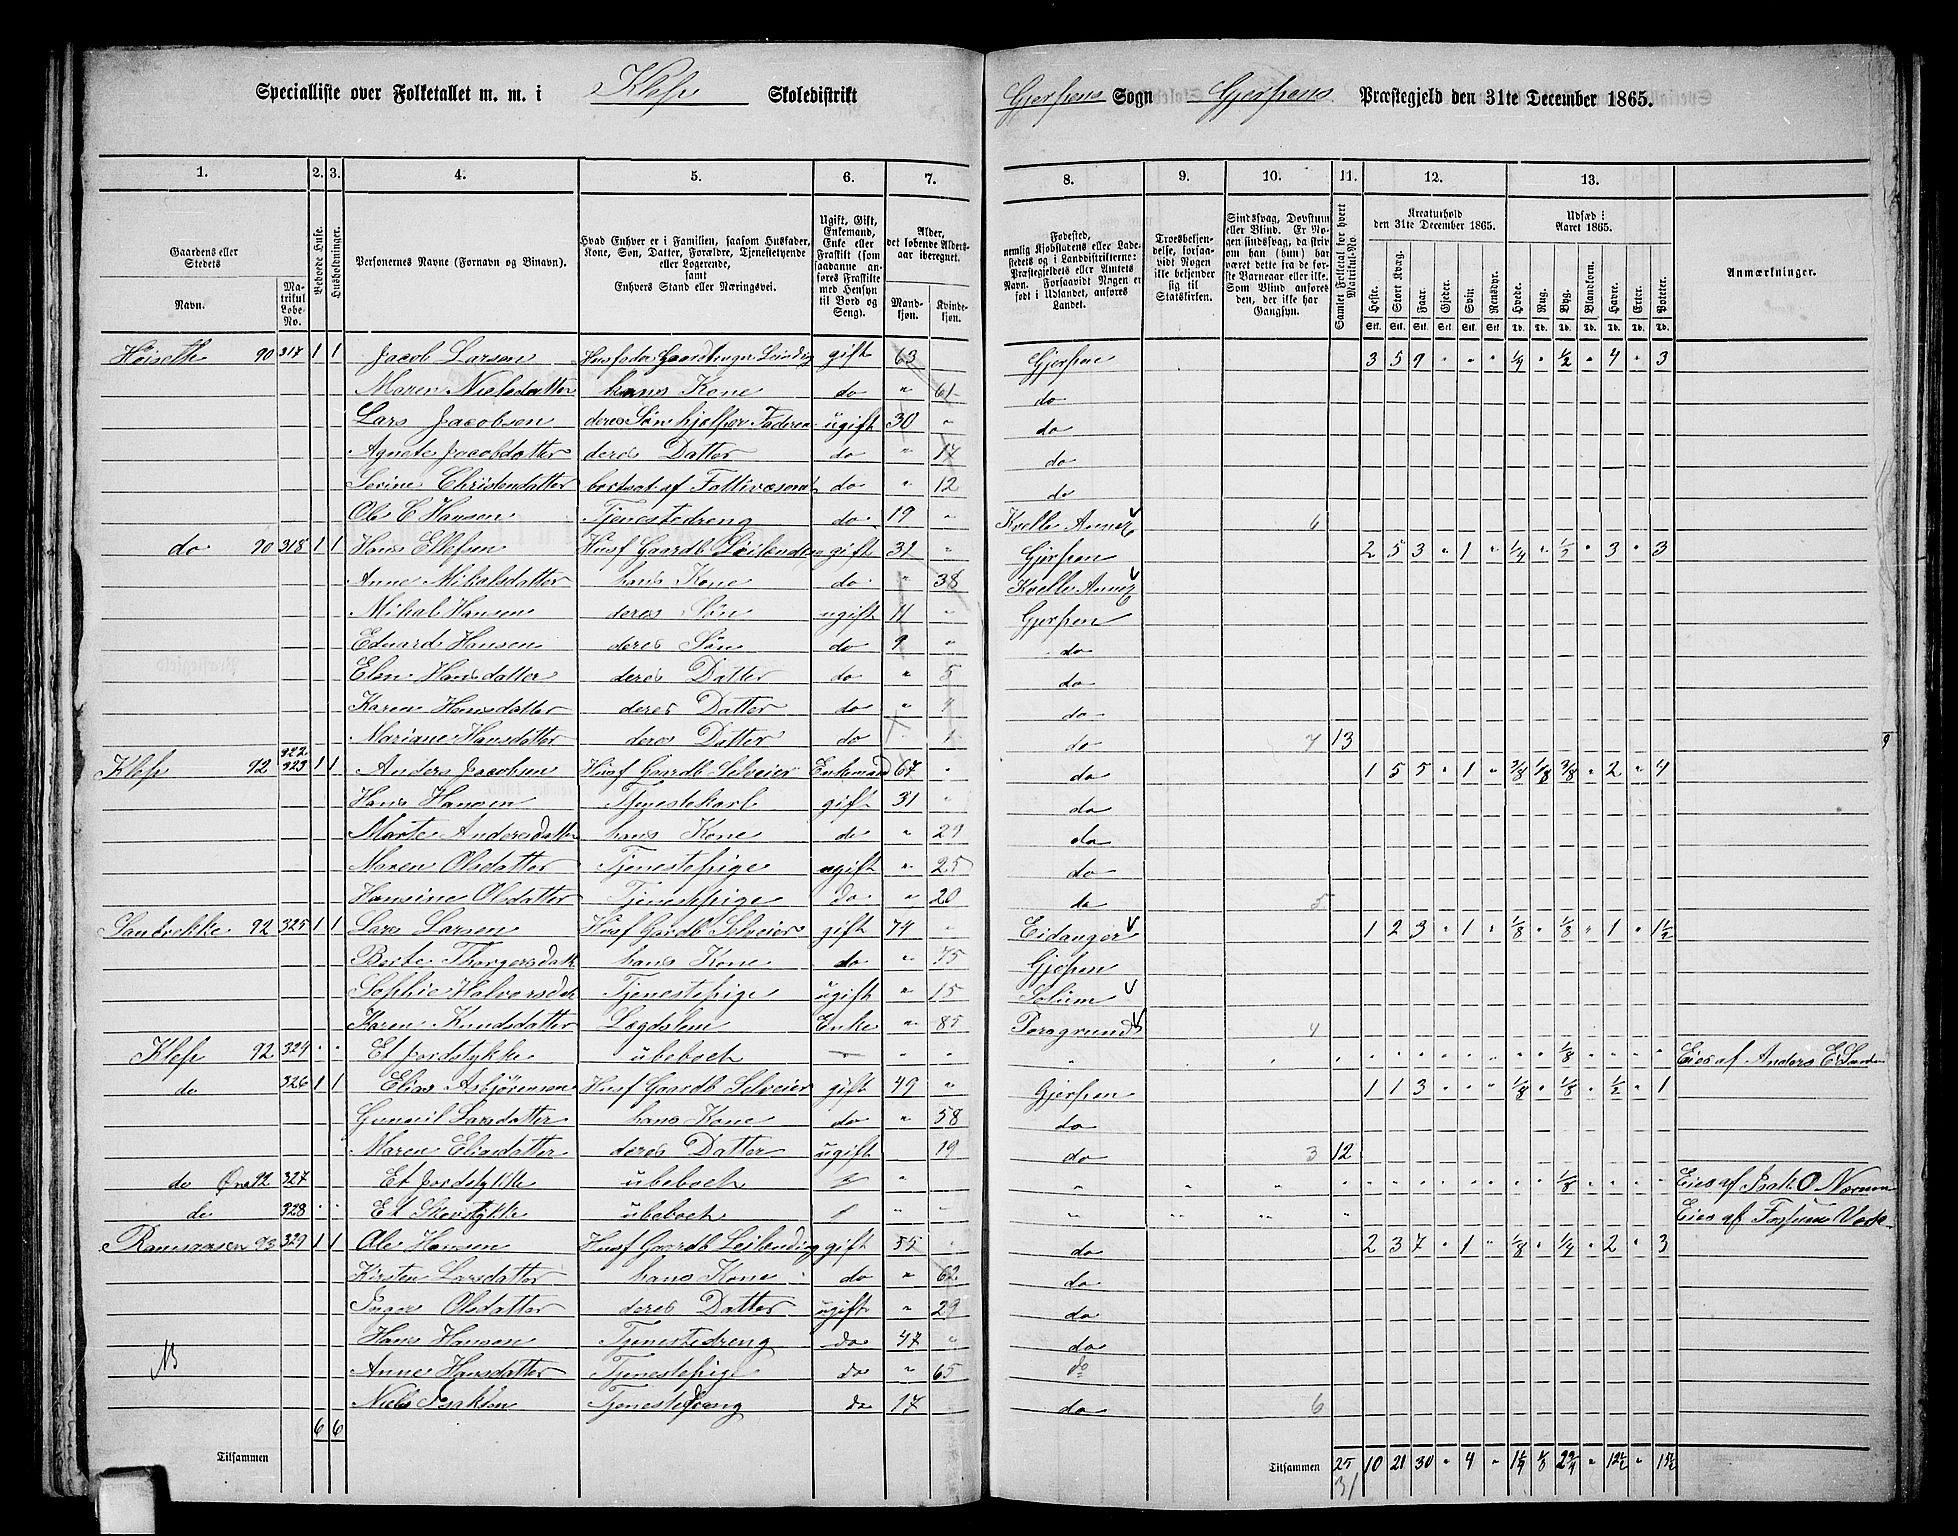 Specialliste over Folketallet m. m. i Klep Skoledistrikt Gjerpens Sogn Gjerpens Præstegjeld den 31te December 1865.
1. 2. 3. 4. 5. 6. 7. 8. 9. 10. 11. 12. 13.
Gaardens eller Stedets Navn. Matrikul Løbe-No. Beboede Huse. Husholdninger. Personernes Navne (Fornavn og Binavn). Hvad Enhver er i Familien, saasom Husfader, Kone, Søn, Datter, Forældre, Tjenestetyende eller Logerende, samt Enhvers Stand eller Næringsvei. Ugift, Gift, Enkemand, Enke eller Fraskilt (som saadanne anføres Fraskilte med Hensyn til Bord og Seng). Alder, det løbende Alders-aar iberegnet. Mandkjøn. Kvindekjøn.
Fødested, nemlig Kjøbstadens eller Ladestedets og i Landdistrikterne: Præstegjeldets eller Amtets Navn. Forsaavidt Nogen er født i Udlandet, anføres Landet. Troesbekjendelse, forsaavidt Nogen ikke bekjender sig til Statskirken. Sindssvag, Døvstum eller Blind. Er Nogen sindssvag, da skrives om han (hun) har været dette fra de første Barneaar eller ikke. Som Blind anføres den, der ikke har Gangsyn. Samlet Folketal for hvert Matrikul-No. Kreaturhold den 31te December 1865. Heste. Stort Kvæg. Faar. Gjeder. Svin Rensdyr. Udsæd i Aaret 1865. Hvede. Rug. Byg. Blandkorn. Havre. Erter. Poteter. Anmærkninger.
Høiseth 90 317 1 1 Jacob Larsen Husfader Gaardbruger Leilendig gift 63 Gjerpen 3 5 9 " " " 1/4 " 1/2 " 4 " 3
Maren Nielsdatter hans Kone do " 61 do
Lars Jacobsen deres Søn hjelper Faderen ugift 30 " do
Agnete Jacobdatter deres Datter do " 17 do
Serine Christendatter bortsat af Fattivæsent do " 12 do
Ole C Hansen Tjenestedreng do 19 " Kvelle Annex 6
do 90 318 1 1 Hans Ellefsen Husf Gaardb Leilending gift 31 " Gjerpen 2 5 3 " 1 " 1/4 " 1/2 " 3 " 3
Anne Mikalsdatter hans Kone do " 38 Kvelle Annex
Mikal Hansen deres Søn ugift 11 " Gjerpen
Edvard Hansen deres Søn do 9 " do
Elen Hansdatter deres Datter do " 5 do
Karen Hansdatter deres Datter do " 4 do
Mariane Hansdatter deres Datter do " 1 do 7 13
Klep 92 322 323 1 1 Anders Jacobsen Husf Gaardb Selveier Enkemand 67 " do 1 5 5 " 1 " 3/8 1/8 3/8 " 2 " 4
Hans Hansen Tjenestekarl gift 31 " do
Marte Andersdatter hans Kone do " 29 do
Maren Olsdatter Tjenestepige ugift " 25 do
Hansine Olsdatter Tjenestepige do " 20 do 5
92 325 1 1 Lars Larsen Husf Gaardb Selveier gift 74 " Eidanger 1 2 3 " 1 " 1/8 " 1/8 " 1 " 1 1/2
Berte Thorgersdatt hans Kone do " 75 Gjerpen
Sophie Halvorsdatt Tjenestepige ugift " 15 Solum
Karen Knudsdatter Lægdslem Enke " 85 Porsgrund 4
Klep 92 324 " " Et Jordstykke ubeboet " " " " 1/8 Eies af Anders E
do 326 1 1 Elias Asbjørensen Husf Gaardb Selveier gift 49 " Gjerpen 1 1 3 " " " 1/8 " 1/8 " 1/2 " 1
Gunnil Larsdatter hans Kone do " 58 do
Maren Eliasdatter deres Datter ugift 19 do 3 12
do 92 327 Et Jordstykke ubeboet " " " " 1/8 Eies af Isak O
do 328 " " Et Skovstykke ubeboet " " " " Eies af Fossum Værk
93 329 1 1 Ole Hansen Husf Gaardb Leilending gift 55 " do 2 3 7 " 1 " 1/8 " 1/4 " 2 " 3
Kirsten Larsdatter hans Kone do " 62 do
Inger Olsdatter deres Datter ugift " 29 do
Hans Hansen Tjenestedreng do 47 " do
Anne Hansdatter Tjenestepige do " 65 do
Niels Isaksen Tjenestedreng do 17 do 6
6 6
Tilsammen Tilsammen 25 10 21 30 " 4 " 1 1/4 1/8 2 1/4 " 12 1/2 " 15 1/2
31